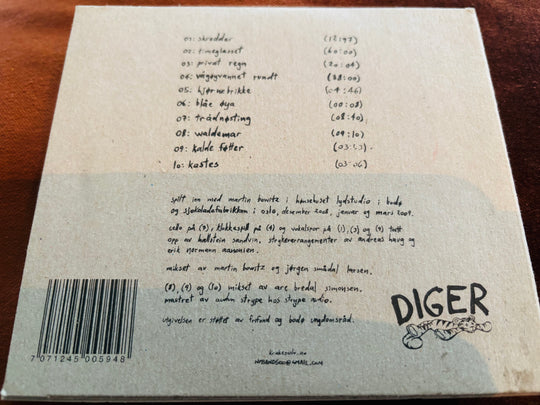 01: skredder (12:97)
02: timeglasset (60:00)
03: privat regn (20:04)
04: vågøyvannet rundt (88:00)
05: hjørnebrikke (04:46)
06: blåe øya (00:08)
07: trådnøsting (08:40)
08: waldemar (09:10)
09: kalde føtter
10: kastes (03:06)
spilt inn med martin bowitz i hønsehuset lydstudio i bodø
og sjokoladefabrikken i oslo, desember 2008, januar og mars 2009.
cello på (7), klokkespill på (4) og vokalspor på (1), (3) og (9) tatt
opp av hallstein sandvin. strykerarrangementer av andreas haug og
erik normann aanonsen.
mikset av martin bowitz og jørgen smådal larsen.
(8), (9) og (10) mikset av are bredal simonsen.
mastret av audun strype hos strype audio.
utgivelsen er støttet av frifond og bodø ungdomsråd.
DIGER
7 071245 005948